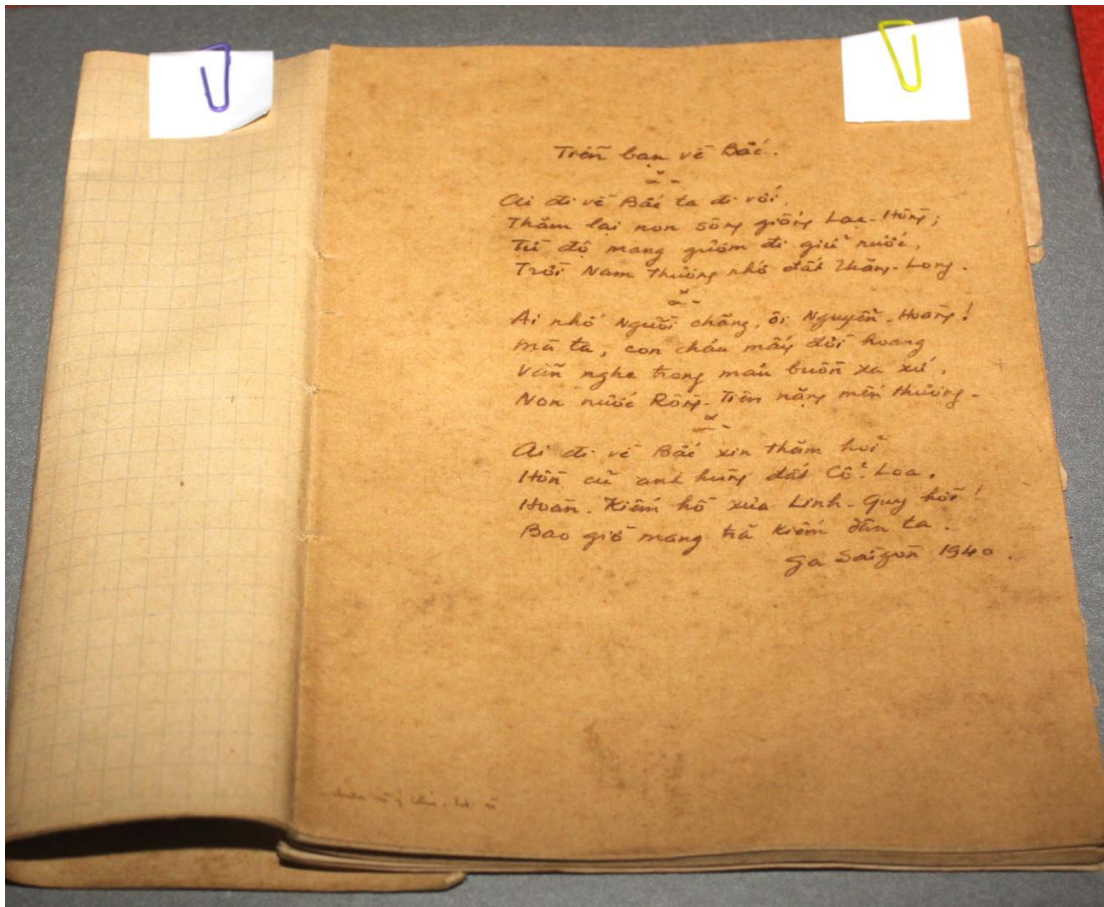 Tiễn bạn về Bắc.
Ai đi về Bắc ta đi với,
Thăm lại non sông giống Lạc-Hồng;
Từ độ mang gươm đi giữ nước,
Trời Nam thương nhớ đất Thăng-Long.
Ai nhớ Người chăng, ôi Nguyễn-Hoàng!
Mà ta, con cháu mấy đời hoang
Vẫn nghe trong máu buồn xa xứ,
Non nước Rồng-Tiên nặng mến thương.
Ai đi về Bắc xin thăm hỏi
Hồn cũ anh hùng đất Cổ-Loa,
Hoàn-Kiếm hồ xưa Linh-Quy hỡi!
Bao giờ mang trả kiếm dân ta.
Ga Saigon 1940.